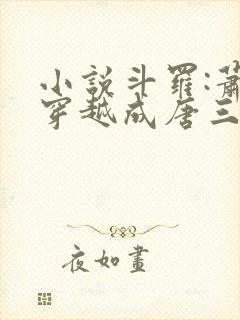 小說斗羅:蕭
穿越成唐三
夜如畫